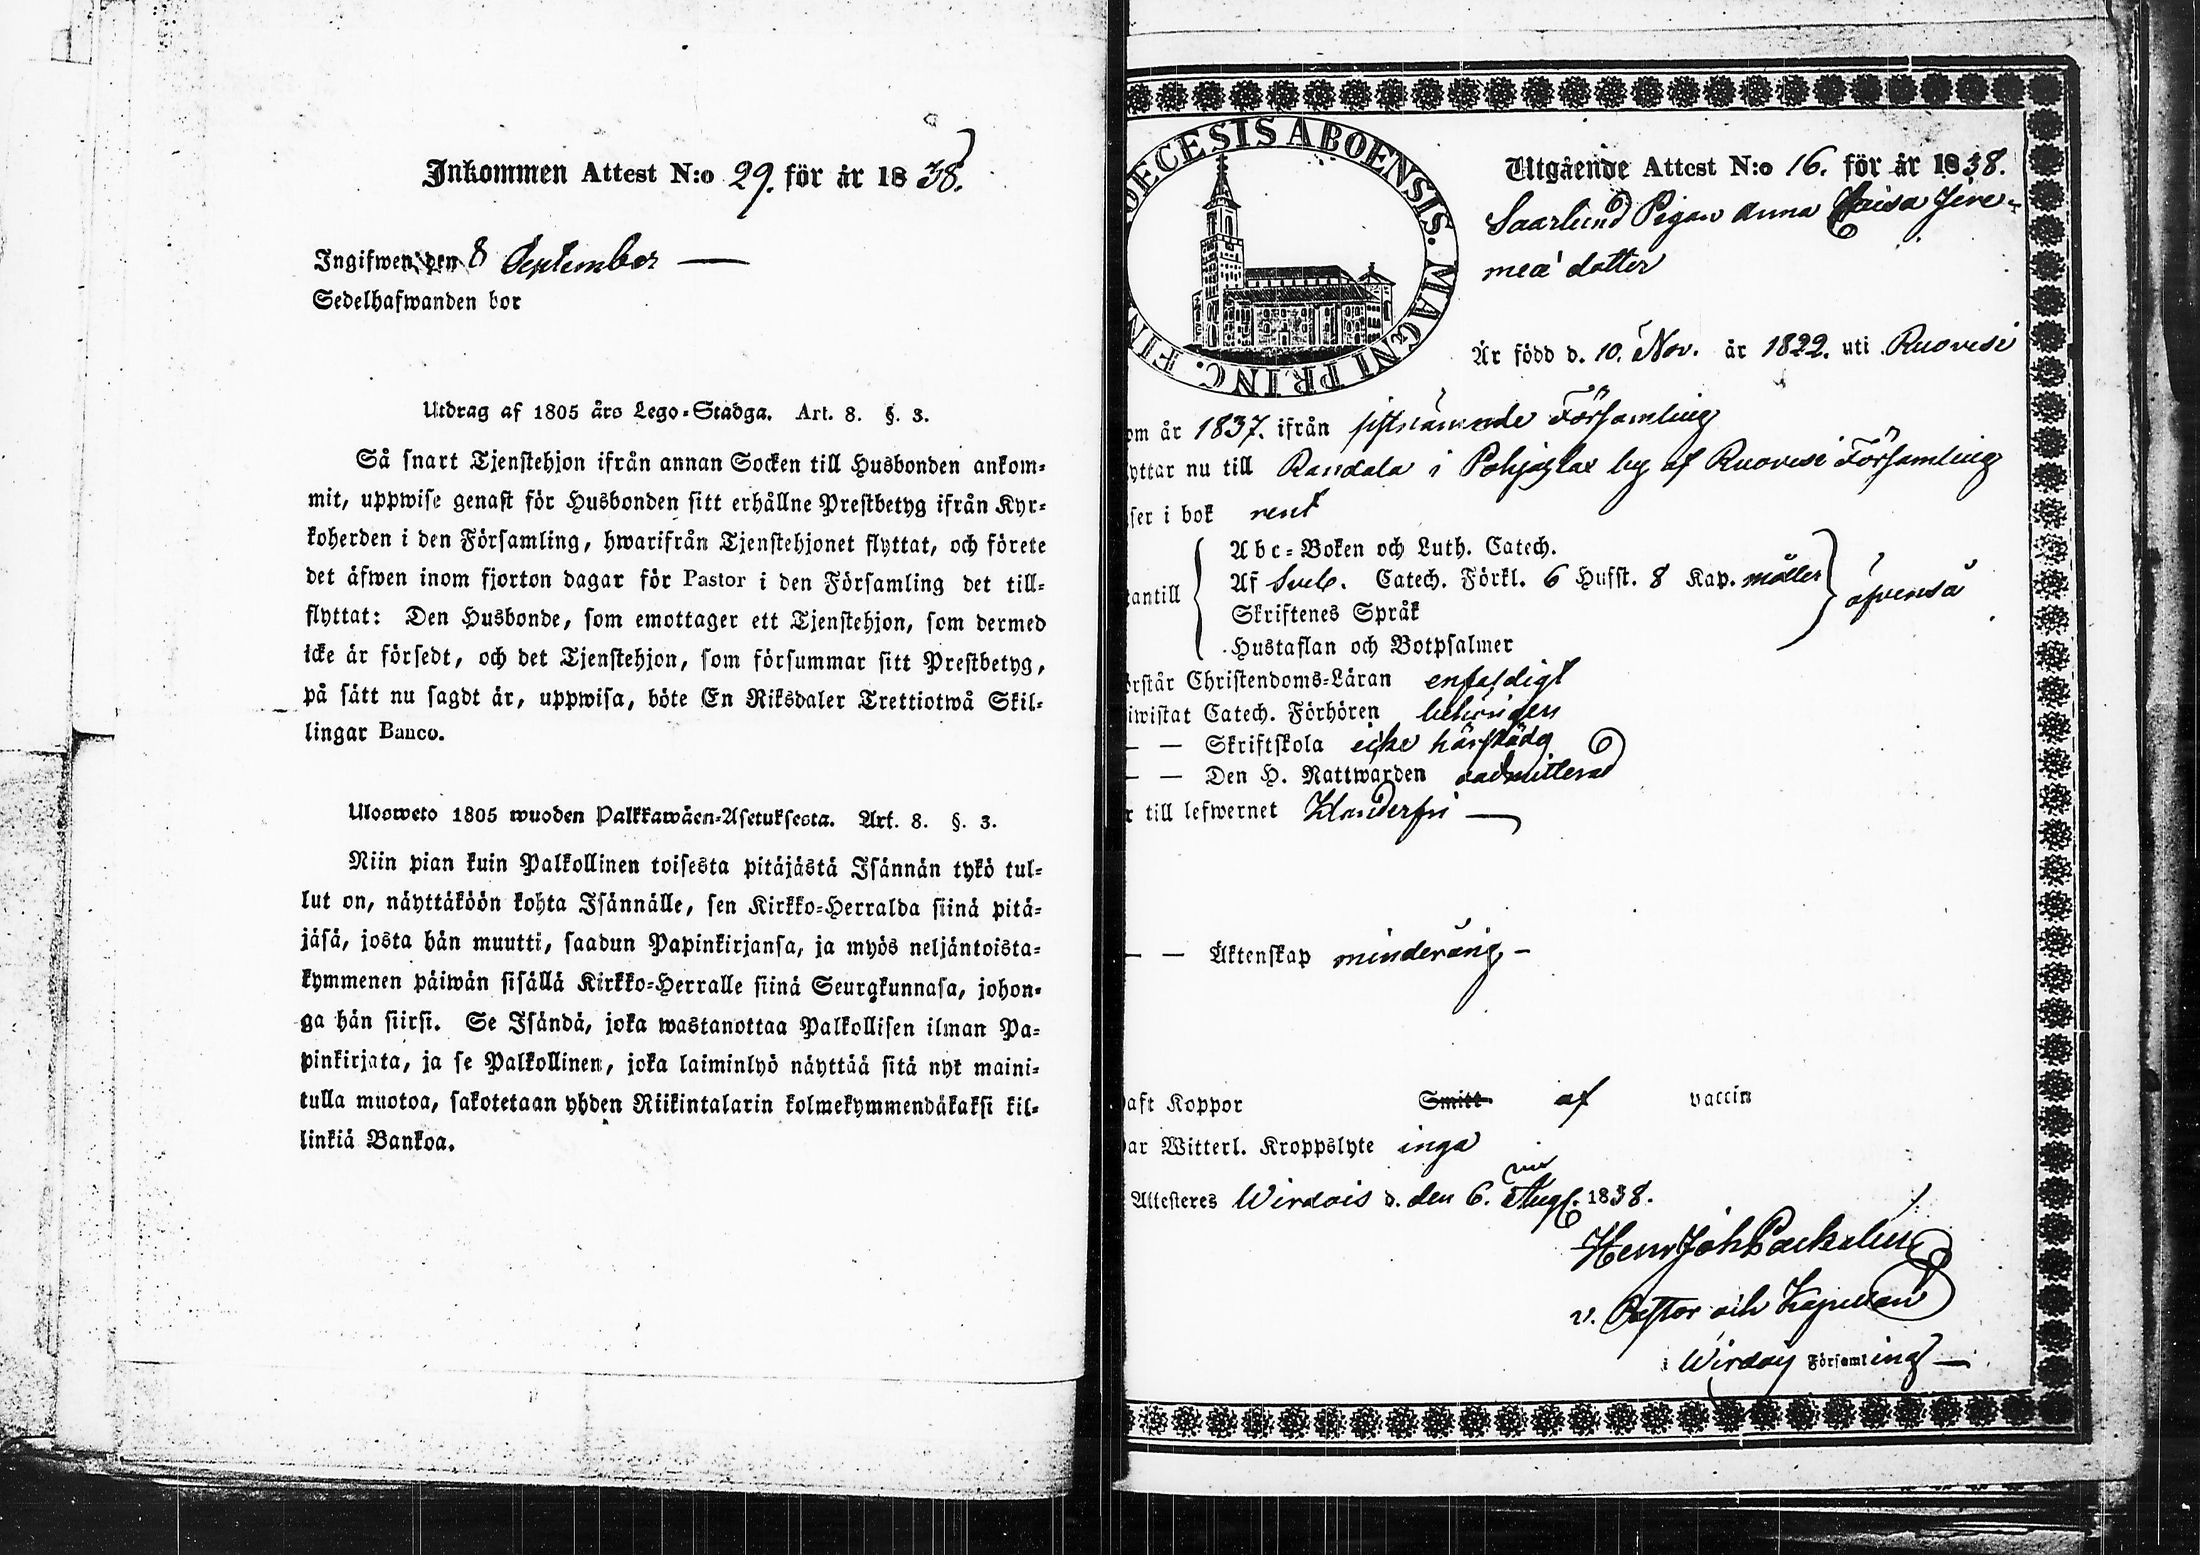 Inkommen Attest N:o 29. för år 1838.
Ingifwen den 8 September —
Sedelhafwanden bor
Utdrag af 1805 års Lego-Stadga. Art. 8. §. 3.
Så snart Tjenstehjon ifrån annan Socken till Husbonden ankom-
mit, uppwise genast för Husbonden sitt erhållne Prestbetyg ifrån Kyr-
koherden i den Församling, hwarifrån Tjenstehjonet flyttat, och förete
det äfwen inom fjorton dagar för Pastor i den Församling det till-
flyttat: Den Husbonde, som emottager ett Tjenstehjon, som dermed
icke är försedt, och det Tjenstehjon, som försummar sitt Prestbetyg,
på sätt nu sagdt är, uppwisa, böte En Riksdaler Trettiotwå Skil-
lingar Banco.
Ulosweto 1805 wuoden Palkkawäen-Asetuksesta. Art. 8. §. 3.
Niin pian kuin Palkollinen toisesta pitäjästä Isännän tykö tul-
lut on, näyttäköön kohta Isännälle, sen Kirkko-Herralda siinä pitä-
jäsä, josta hän muutti, saadun Papinkirjansa, ja myös neljäntoista-
kymmenen päiwän sisällä Kirkko-Herralle siinä Seurakunnasa, johon-
ga hän siirsi. Se Isändä, joka wastanottaa Palkollisen ilman Pa-
pinkirjata, ja se Palkollinen, joka laiminlyö näyttää sitä nyt maini-
tulla muotoa, sakotetaan yhden Riikintalarin kolmekymmendäkaksi kil-
linkiä Bankoa.
OECESIS ABOENSIS. MAGNI PRINC. FIN
Utgående Attest N:o 16. för år 1838.
Saarlund Pigan Anna Caisa Jere-
meæ dotter
Är född d. 10. Nov. år 1822. uti Ruovesi
om år 1837. ifrån sistnämnde Församling
yttar nu till Randala i Pohjaslax by af Ruovesi Församling
ser i bok rent
Abc-Boken och Luth. Catech.
antill Af Sveb. Catech. Förkl. 6 Hufst. 8 Kap. äfvenså
Skriftenes Språk
Hustaflan och Botpsalmer
örstår Christendoms-Läran enfaldigt
iwistat Catech. Förhören behörigen
— — Skriftskola icke härstädes
— — Den H. Nattwarden oadmitterad
r till lefwernet Klanderfri —
— — Äktenskap minderårig —
aft Koppor Smitt af vaccin
ar Witterl. Kroppslyte inga
Attesteres Wirdois d. den 6. Aug. 1838.
Henr Joh Packalén
v. Pastor och Kapellan
i Wirdoiς Församling —